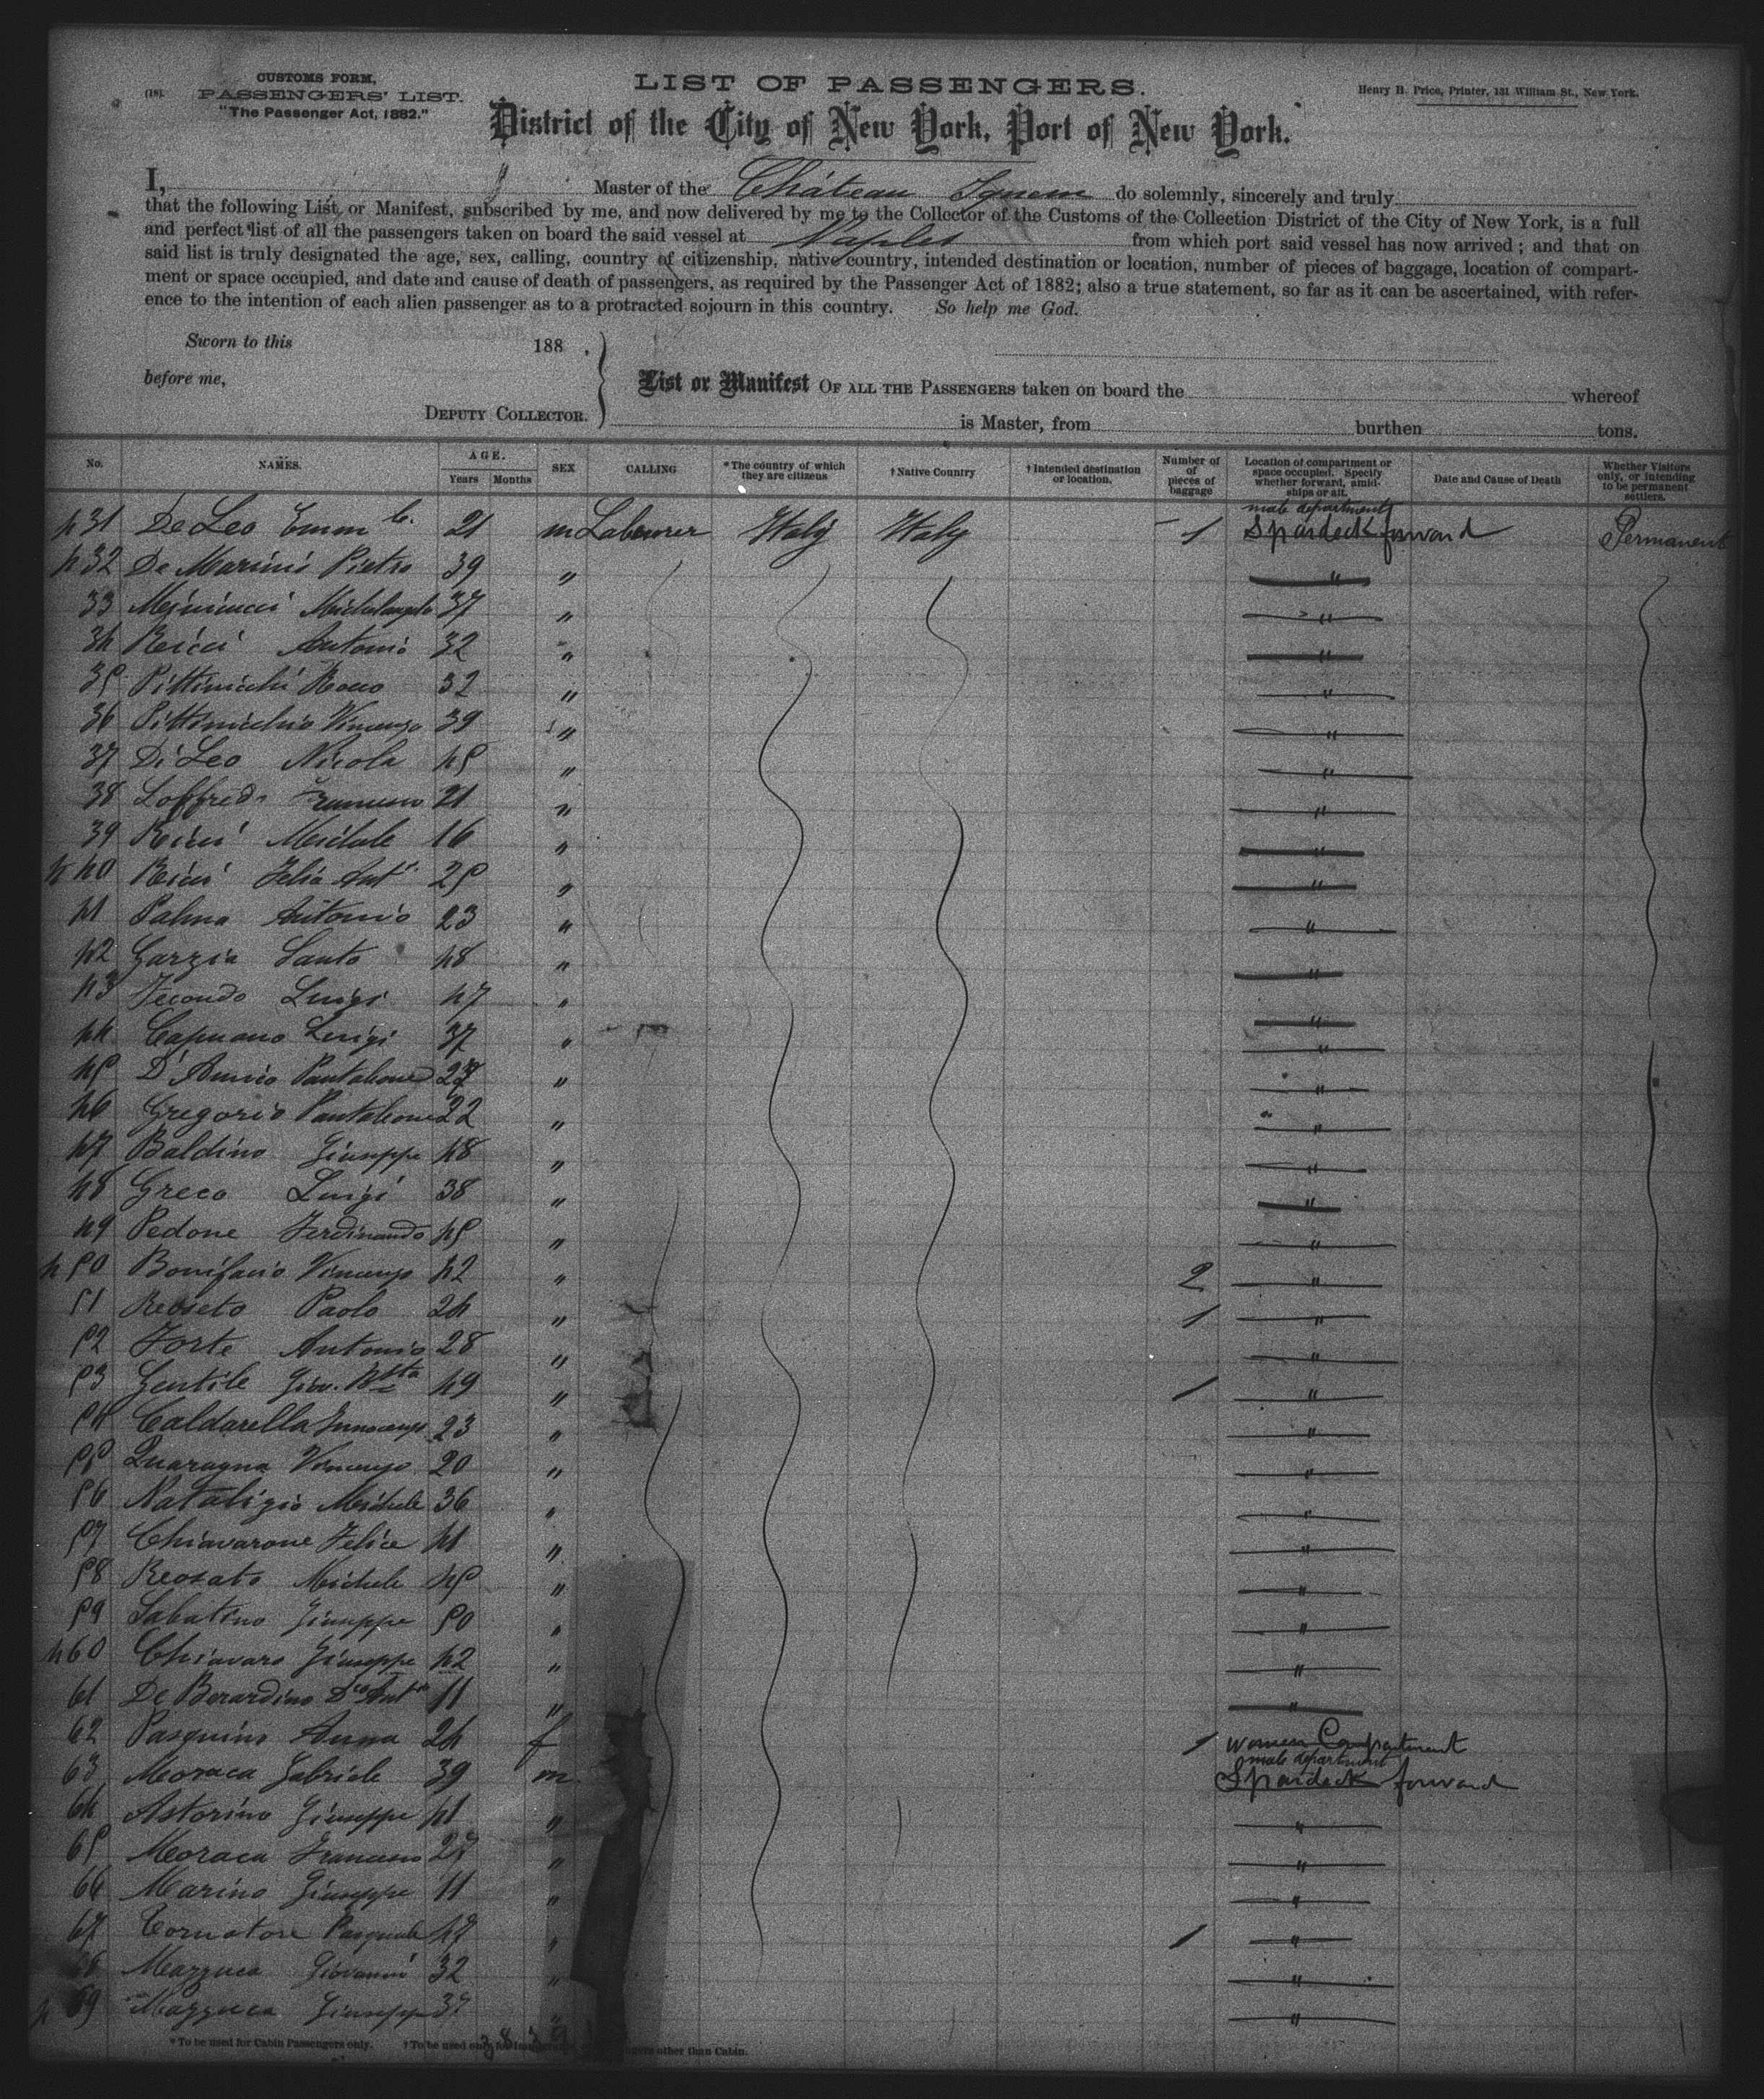 CUSTOMS FORM,
(18).
PASSENGERS' LIST.
"The Passenger Act, 1882."
LIST OF PASSENGERS.
District of the City of New York, Port of New York.
Henry B. Price, Printer, 131 William St., New York.
I, Master of the Château Yquem do solemnly, sincerely and truly
that the following List or Manifest, subscribed by me, and now delivered by me to the Collector of the Customs of the Collection District of the City of New York, is a full
and perfect list of all the passengers taken on board the said vessel at Naples from which port said vessel has now arrived; and that on
said list is truly designated the age, sex, calling, country of citizenship, native country, intended destination or location, number of pieces of baggage, location of compart-
ment or space occupied, and date and cause of death of passengers, as required by the Passenger Act of 1882; also a true statement, so far as it can be ascertained, with refer-
ence to the intention of each alien passenger as to a protracted sojourn in this country. So help me God.
Sworn to this 188 .
before me,
DEPUTY COLLECTOR.
List or Manifest OF ALL THE PASSENGERS taken on board the whereof
is Master, from burthen tons.
No. NAMES. AGE. Years Months SEX CALLING *The country of which they are citizens †Native Country †Intended destination or location. Number of of pieces of baggage Location of compartment or space occupied. Specify whether forward, amid-ships or aft. Date and Cause of Death Whether Visitors only, or intending to be permanent settlers.
male department
431 De Leo Emm C. 21 m Labourer Italy Italy 1 Spardeck forward Permanent
432 De Marinis Pietro 39 "  "
33 Michelangelo 37 " "
34 Ricci Antonio 32 " "
35 Pittinicchi Rocco 32 " "
36 Pittinicchio Vincenzo 39 " "
37 Di Leo Nicola 45 " "
38 Loffredo Francesco 21 " "
39 Ricci Michele 16 " "
440 Ricci Felice Ant 25 " "
41 Palma Antonio 23 " "
42 Garzia Santo 48 " "
43 Luigi 47 " "
44 Capuano Luigi 37 " "
45 Pantaleone " "
46 Gregorio Pantaleone 22 " "
47 Baldino Giuseppe 48 " "
48 Greco Luigi 38 " "
49 Pedone Ferdinando 45 " "
450 Bonifacio Vincenzo 42 " 2 "
51 Paolo 24 " 1 "
52 Forte Antonio 28 " "
53 Gentile Giov. Btta 49 " 1 "
54 Caldarella Innocenzo 23 " "
55 Quaragna Vincenzo 20 " "
56 Natalizio Michele 36 " "
57 Chiavarone Felice 41 " "
58 Reosato Michele 45 " "
59 Sabatino Giuseppe 50 " "
460 Chiavaro Giuseppe 42 " "
61 De Berardino 11 " "
62 Pasquino Anna 24 f 1 women Compartment
male department
63 Moraca Gabriele 39 m Spardeck forward
64 Astorino Giuseppe 41 " "
65 Moraca Francesco 27 " "
66 Marino Giuseppe 11 " "
67 Tornatore Pasquale 47 " 1 "
68 Mazzuca Giovanni 32 " "
469 Mazzuca Giuseppe 37 " "
*To be used for Cabin Passengers only. †To be used only for other than Cabin.